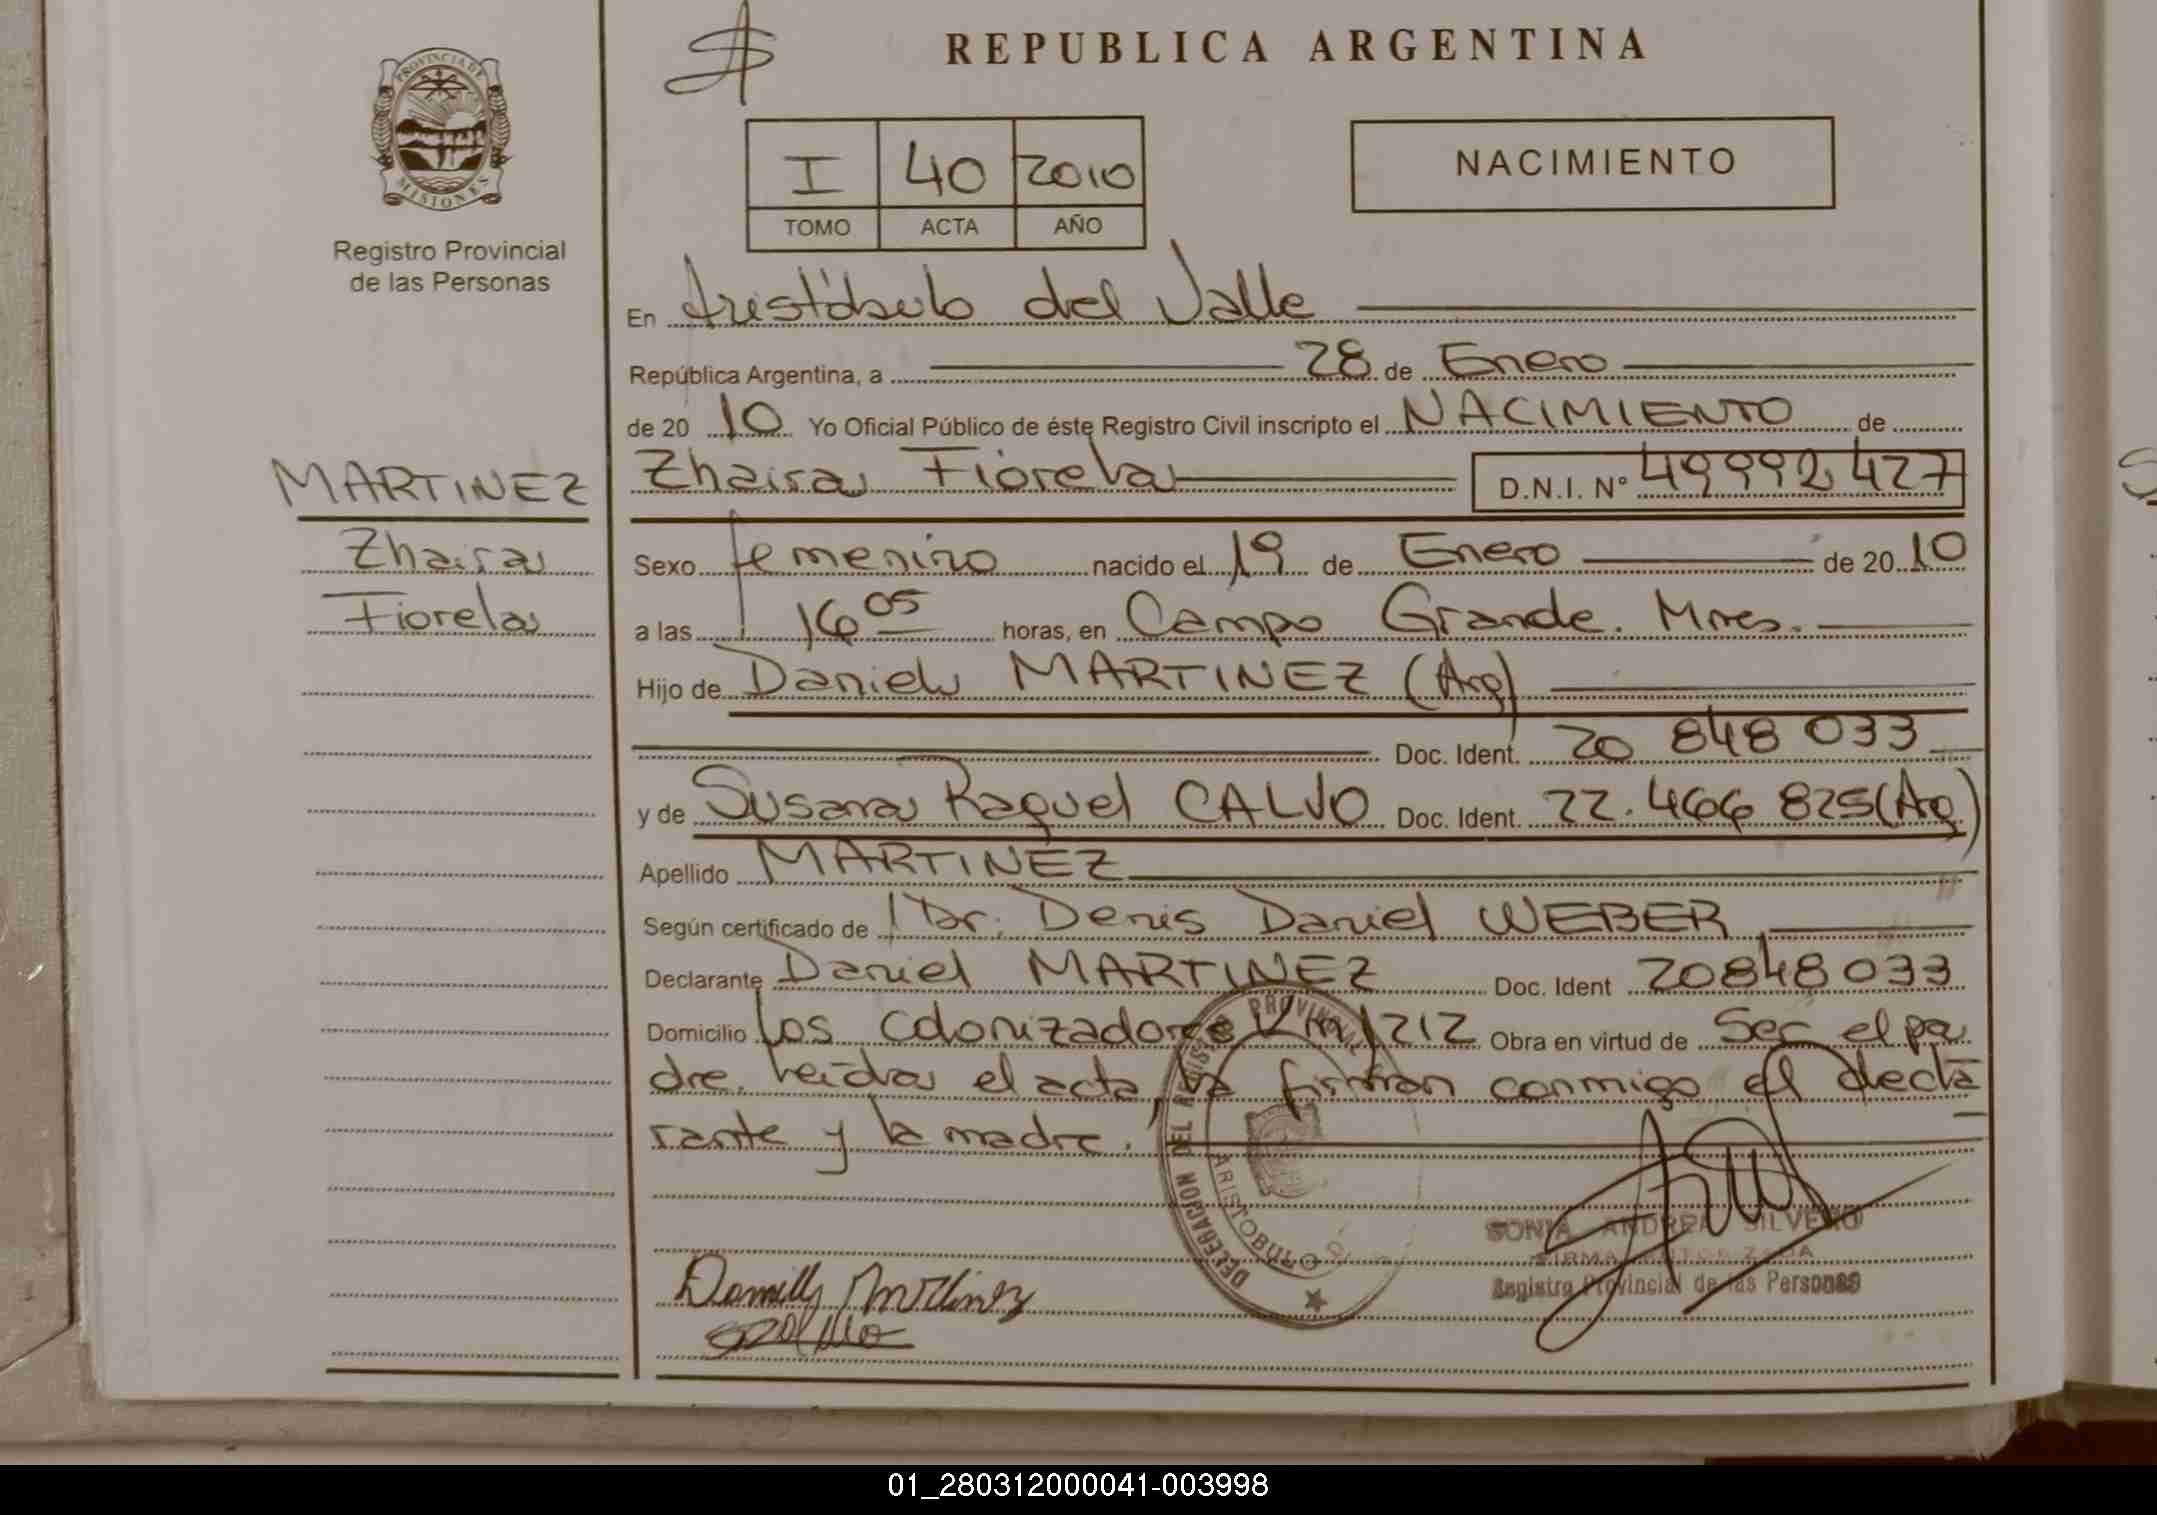 REPUBLICA ARGENTINA
PROVINCIA DE MISIONES
Registro Provincial
de las Personas
I 40 2010
TOMO ACTA AÑO
NACIMIENTO
En Aristóbulo del Valle
República Argentina, a 28 de Enero
de 20 10 Yo Oficial Público de éste Registro Civil inscripto el NACIMIENTO de
MARTINEZ
Zhaira
Fiorela
Zhaira Fiorela D.N.I. N° 49992427
Sexo femenino nacido el 19 de Enero de 20 10
a las 16 05 horas, en Campo Grande. Mnes.
Hijo de Daniel MARTINEZ (Arg)
Doc. Ident. 20 848 033
y de Susana Raquel CALVO Doc. Ident. 22.466 825 (Arg)
Apellido MARTINEZ
Según certificado de Dr. Denis Daniel WEBER
Declarante Daniel MARTINEZ Doc. Ident 20848033
Domicilio Los Colonizadores Km 1212 Obra en virtud de Ser el pa
dre. Leida el acta, la firman conmigo el decla
rante y la madre.
DELEGACION DEL REGISTRO PROVINCIAL
ARISTOBULO
SONIA ANDREA SILVERO
FIRMA AUTORIZADA
Registro Provincial de las Personas
01_280312000041-003998